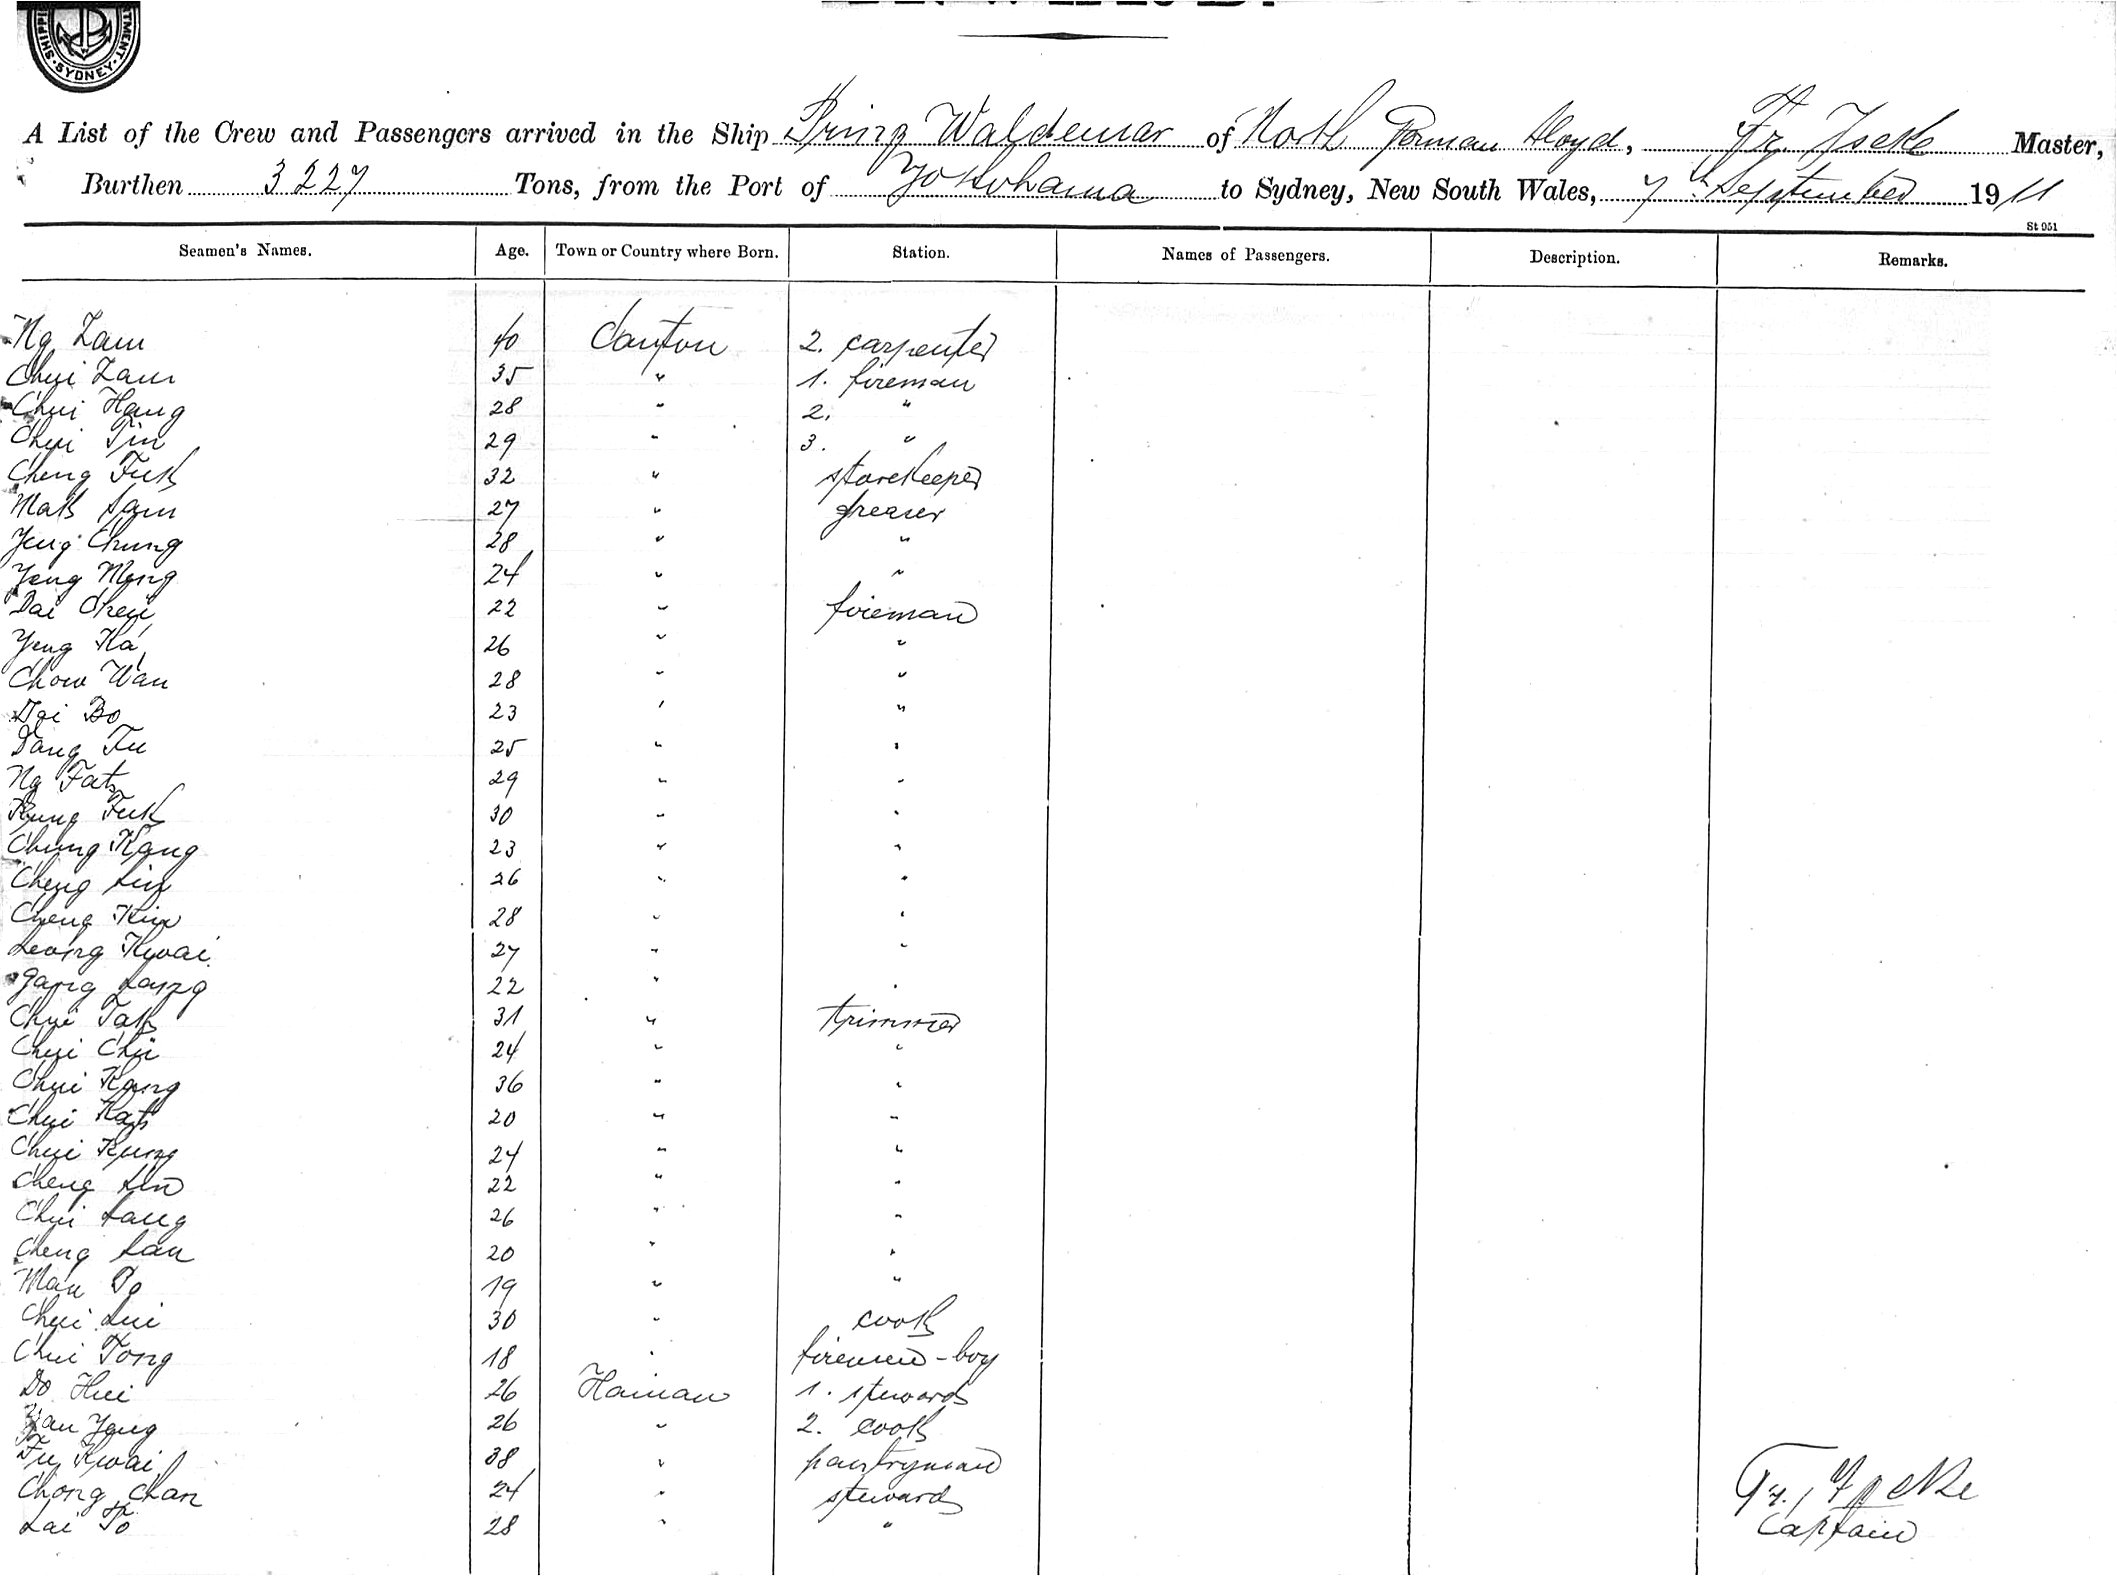 SHIPPI TMENT. SYDNEY.
A List of the Crew and Passengers arrived in the Ship Prinz Waldemar of North German Lloyd, Fr. Iseke Master,
Burthen 3227 Tons, from the Port of Yokohama to Sydney, New South Wales, 7 September 1911
St 951
Seamen's Names. Age. Town or Country where Born. Station. Names of Passengers. Description. Remarks.
Ng Zam 40 Canton 2. carpenter
Chui Zam 35 " 1. fireman
Chui Hang 28 " 2. "
Chui Tin 29 " 3. "
Cheng Fuk 32 " storekeeper
Mak Sam 27 " greaser
Yung Chung 28 " "
Yeng Meng 24 " "
Dai Cheu 22 " fireman
Yeng Ka 26 " "
Chow Wan 28 " "
Dai Bo 23 " "
Dang Fu 25 " "
Ng Fat 29 " "
Kung Fuk 30 " "
Chung Kang 23 " "
Cheng Lin 26 " "
Cheng Kin 28 " "
Leong Kwai 27 " "
Yang Lang 22 " "
Chui Tak 31 " trimmer
Chui Chü 24 " "
Chui Kang 36 " "
Chui Kat 20 " "
Chui Kung 24 " "
Cheng Lin 22 " "
Chui Lang 26 " "
Cheng San 20 " "
Man Po 19 " "
Chui Lui 30 " cook
Chui Tong 18 " firemen-boy
Do Hui 26 Hainan 1. steward
Yan Yong 26 " 2. cook
Fu Kwai 38 " pantryman
Chong Chan 24 " steward
Lai To 28 " "
Fr. Iseke
Captain